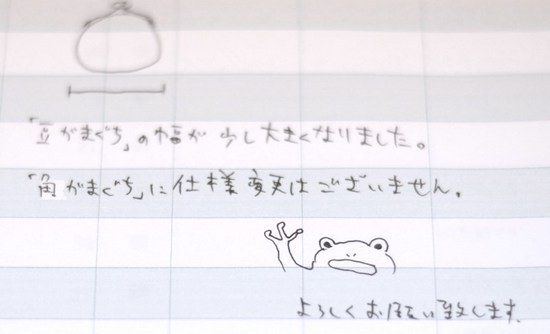 「立がまぐち」の幅が少し大きくなりました。
「角がまぐち」に仕様変更はございません。
よろしくお願い致します。